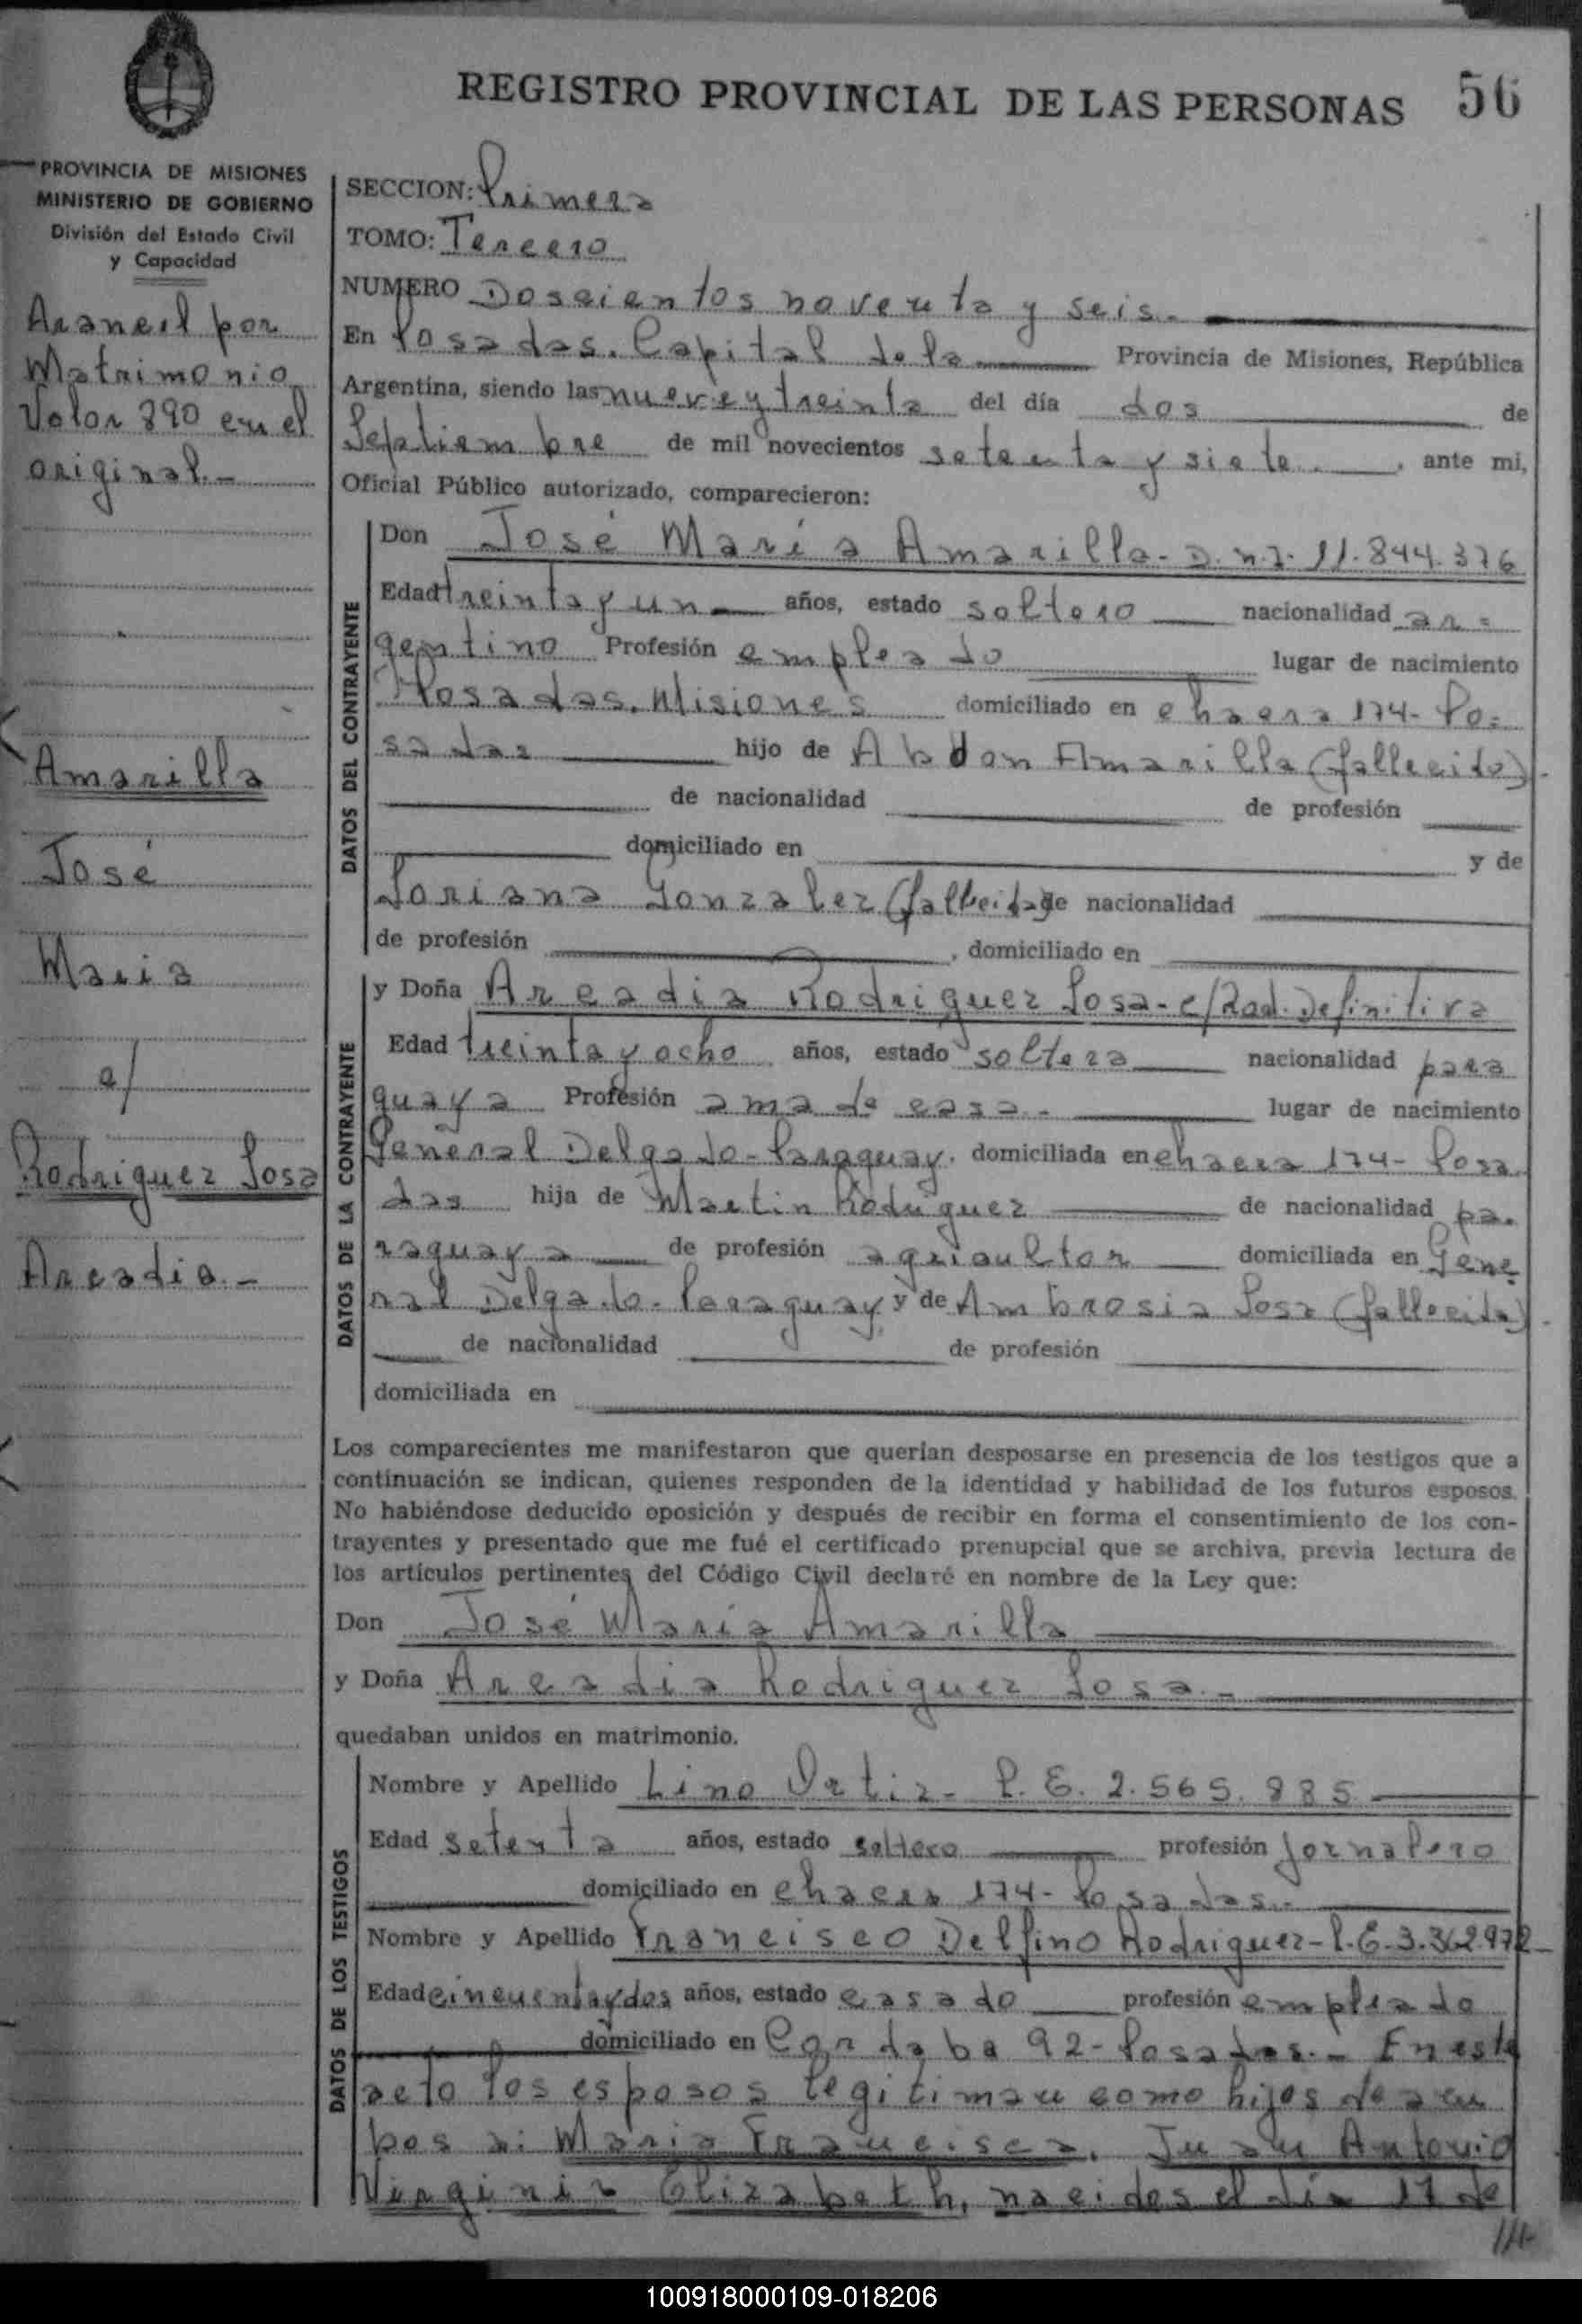 REGISTRO PROVINCIAL DE LAS PERSONAS 56
PROVINCIA DE MISIONES
MINISTERIO DE GOBIERNO
División del Estado Civil
y Capacidad
Arancel por
Matrimonio
Valor 890 en el
original.-
Amarilla
José
Maria
c/
Rodriguez Sosa
Arcadia.-
SECCION: Primera
TOMO: Tercero
NUMERO Doscientos noventa y seis.-
En Posadas. Capital de la Provincia de Misiones, República
Argentina, siendo las nueve y treinta del día dos de
Septiembre de mil novecientos setenta y siete. , ante mi,
Oficial Público autorizado, comparecieron:
DATOS DEL CONTRAYENTE
Don José María Amarilla- D.N.I. 11.844.376
Edad treinta y un años, estado soltero nacionalidad ar=
gentino Profesión empleado lugar de nacimiento
Posadas. Misiones domiciliado en chacra 174- Po=
sadas hijo de Abdon Amarilla (fallecido).
de nacionalidad de profesión
domiciliado en y de
Loriana Gonzalez (fallecida) de nacionalidad
de profesión , domiciliado en
DATOS DE LA CONTRAYENTE
y Doña Arcadia Rodriguez Sosa- c/Rad. Definitiva
Edad treinta y ocho años, estado soltera nacionalidad para
guaya Profesión ama de casa.- lugar de nacimiento
General Delgado- Paraguay. domiciliada en chacra 174- Posa
das hija de Martin Rodriguez de nacionalidad pa.
raguaya de profesión agricultor domiciliada en Gene
ral Delgado- Paraguay y de Ambrosia Sosa (fallecida).
de nacionalidad de profesión
domiciliada en
Los comparecientes me manifestaron que querían desposarse en presencia de los testigos que a
continuación se indican, quienes responden de la identidad y habilidad de los futuros esposos.
No habiéndose deducido oposición y después de recibir en forma el consentimiento de los con-
trayentes y presentado que me fué el certificado prenupcial que se archiva, previa lectura de
los artículos pertinentes del Código Civil declaré en nombre de la Ley que:
Don José María Amarilla
y Doña Arcadia Rodriguez Sosa.-
quedaban unidos en matrimonio.
DATOS DE LOS TESTIGOS
Nombre y Apellido Lino Ortiz- L.E. 2.565.885
Edad setenta años, estado soltero profesión jornalero
domiciliado en chacra 174- Posadas.-
Nombre y Apellido Francisco Delfino Rodriguez- L.E. 3.362.972-
Edad cincuenta y dos años, estado casado profesión empleado
domiciliado en Cordoba 92- Posadas.- En este
acto los esposos legitiman como hijos de am
bos a: Maria Francisca. Juan Antonio
Virginia Elizabeth, nacidos el día 17 de
///-
100918000109-018206